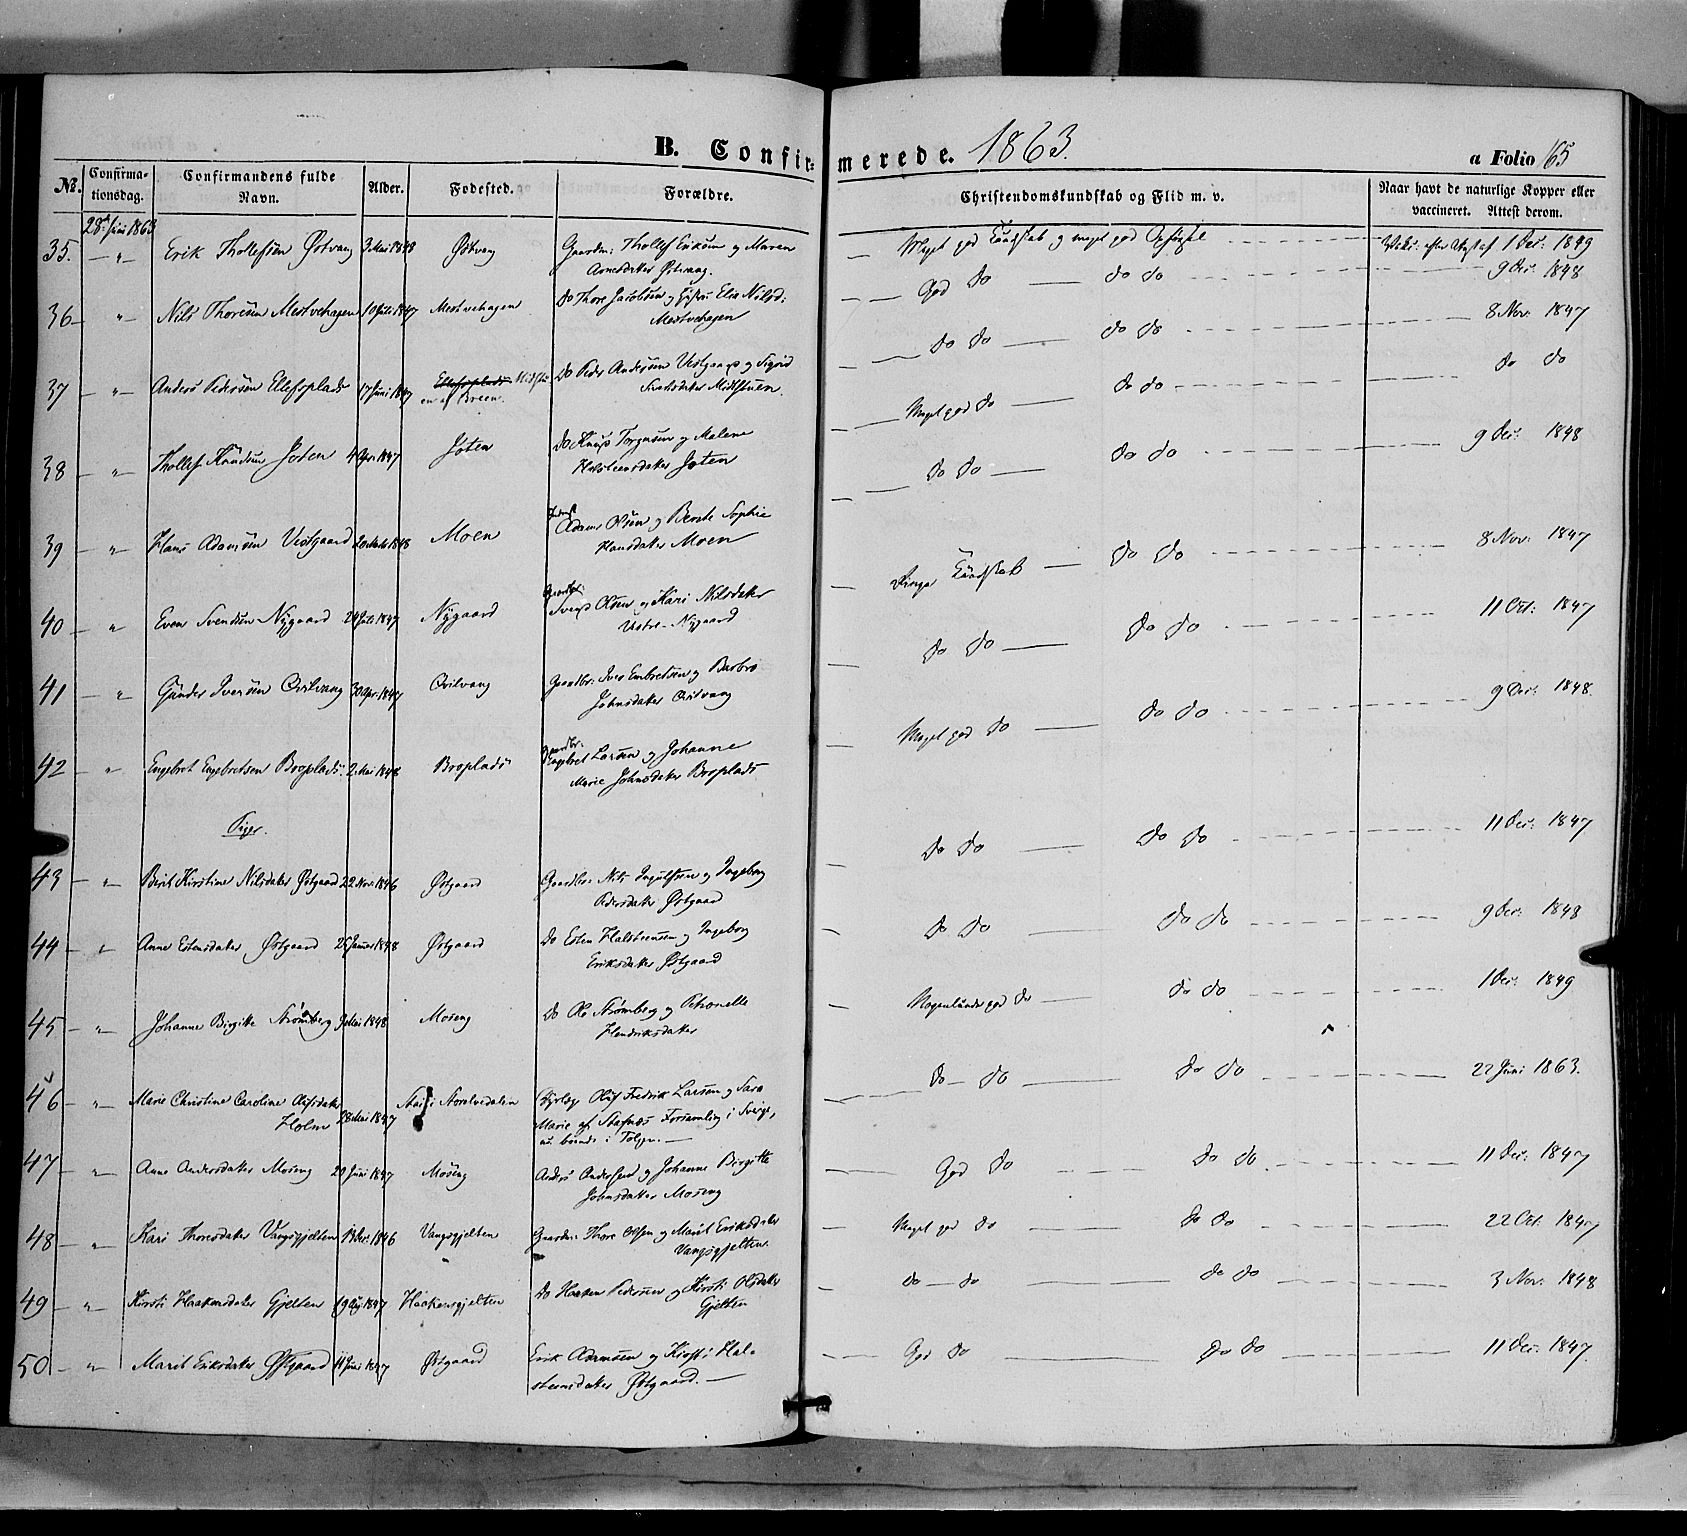 B. Confir= merede. 1863. a Folio 165
No. Confirma-tionsdag. Confirmandens fulde Navn. Alder. Fødested. Forældre. Christendomskundskab og Flid m. v. Naar havt de naturlige Kopper eller vaccineret. Attest derom.
28 Juni 1863
35. — " Erik Thollefsen Østvang 3 Mai 1848 Østvang Gaardm: Thollef Eriksen og Maren
Arnesdatter Østvang. Meget god Kundskab og meget god Opførsel 1 Dec: 1849
36 — " Nils Thoresen Mestvehagen 10 Juli 1847 Mestvehagen Do Thore Jacobsen og Elie Nilsd:
Mestvehagen God Do do do 9 Dec: 1848
37 — " Anders Pedersen Ellefsplads 17 Juni 1847 Ellefsplads Midstu
en af Breen. Do Peder Andersen Vestgaard og Sigrid
Midtstuen. Do Do do do 8 Nov: 1847
38 — " Thollef Knudsen Joten 4 Apr 1847 Joten Do Knud og Malene
Halsteensdatter Joten Meget god do do do do do
39 — " Hans Adamsen Vestgaard 1848 Moen Adam Olsen og Bereth Sophie
Hansdatter Moen Do Do do do 9 Dec: 1848
40 — " Even Svendsen Nygaard 24 Juli 1847 Nygaard Svend Olsen og Kari Nilsdatter
Vestre Nygaard Ringe Kundskab Do Do 8 Nov: 1847
41 — " Gunder Iversen Qvilvang 30 Apr 1847 Qvilvang Gaardbr: Iver Embretsen og Barbro
Johnsdatter Qvilvang Do Do do do 11 Oct: 1847
42 — " Engebret Engebretsen Broplads 2 Mai 1848 Broplads Gaardbr: Engebret Larsen og Johanne
Marie Johnsdatter Broplads Meget god do do do 9 Dec: 1848.
Piger.
43 — " Berit Kirstine Nilsdatter Østgaard 22 Nov: 1846 Østgaard Gaardbr: Nils Ingulfsen og Ingeborg
Østgaard Do Do Do Do 11 Dec: 1847
44 — " Anne Estensdatter Østgaard 25 Januar 1848 Østgaard Do Esten Halsteensen og Ingeborg
Eriksdatter Østgaard Do Do do do 9 Dec: 1848
45 — " Johanne Birgitte Strømberg 9 Mai 1848 Moseng Do Ole Strømberg og Petronelle
Hendriksdatter Nogenlunde god do do do 1 Dec: 1849
46 — " Marie Christine Caroline Olafsdatter
Holm 28 Mai 1847 i Olaf Fredrik Larsen og Sara
Marie af Forsamling i Sverige,
nu boende i Tolgen. — Do — do do do 22 Juni 1863.
47 — " Anne Andersdatter Moseng 20 Juni 1847 Moseng Anders Andersen og Johanne Birgitte
Johnsdatter Moseng God do do do 11 Dec: 1847
48 — " Kari Thoresdatter Vangsgjelten 1846 Vangsgjelten Gaardm: Thore Olsen og Marit Eriksdatter
Vangsgjelten. Meget god do do do 22 Oct: 1847
49 — " Kirsti Haakensdatter Gjelten 19 Aug 1847 Haakensgjelten Do Haaken Pedersen og Kirsti Olsdatter
Gjelten do — do do do 3 Nov: 1848
50 — " Marit Eriksdatter Østgaard 11 Juni 1847 Østgaard Erik Adamsen og Kirsti Hal-
steensdatter Østgaard. — God do do do 11 Dec: 1847.